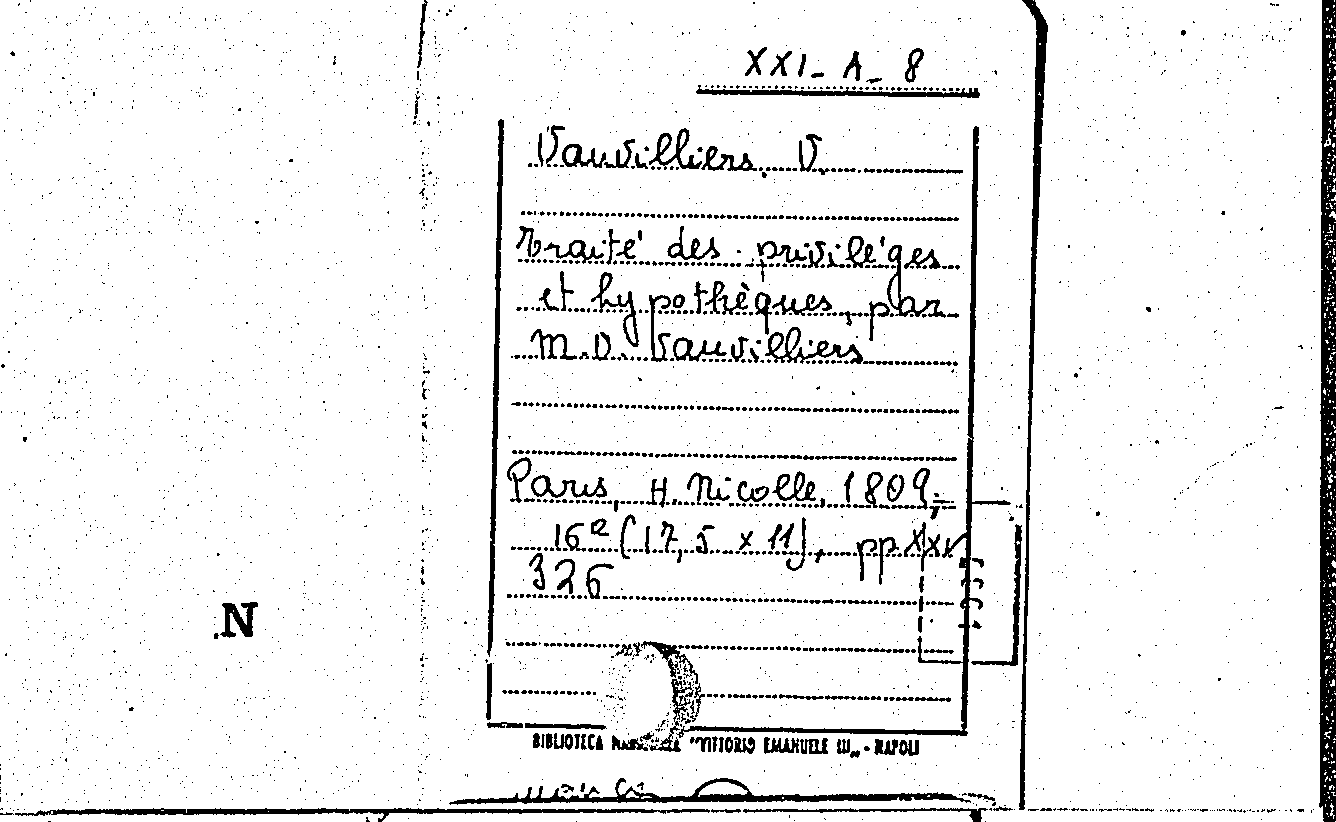 XXI-A-8
Vauvilliers, V.
Traité des privilèges
et hypothèques, par
M.V. Vauvilliers
Paris, H. Nicolle, 1809,
16º (17,5 x 11), pp XXIV
326
N
BIBLIOTECA "VITTORIO EMANUELE III" - NAPOLI